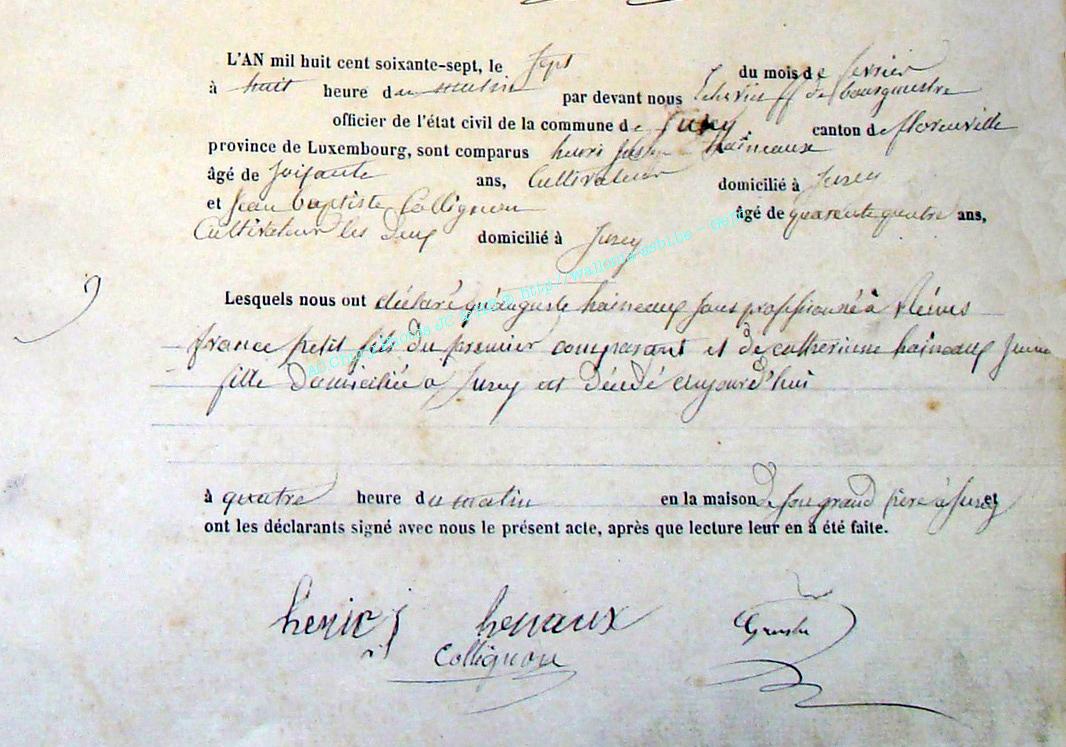 L'AN mil huit cent soixante-sept, le sept du mois de fevrier
à huit heure du matin par devant nous Echevin ff de bourgmestre
officier de l'état civil de la commune de Suxy, canton de florenville
province de Luxembourg, sont comparus henri haineaux
âgé de soixante ans, Cultivateur domicilié à Suxy
et Jean baptiste Collignon âgé de quarente quatre ans,
Cultivateur les deux domicilié à Suxy
Lesquels nous ont déclaré qu'auguste haineaux sans profession né à
france petit fils du premier comparant et de catherinne haineaux jeune
fille domiciliée a Suxy est décédé aujourd'hui
à quatre heure du matin en la maison de son grand père à Suxy et
ont les déclarants signé avec nous le présent acte, après que lecture leur en a été faite.
henrie j henaux
Collignon